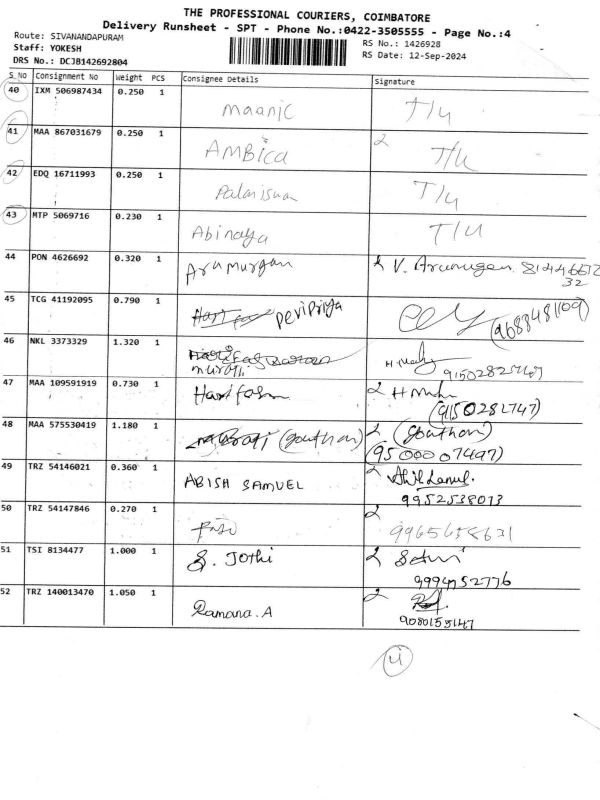 THE PROFESSIONAL COURIERS, COIMBATORE
Delivery Runsheet - SPT - Phone No.:0422-3505555 - Page No.:4
Route: SIVANANDAPURAM
RS No.: 1426928
Staff: YOKESH
RS Date: 12-Sep-2024
DRS No.: DCJB142692804
S.No Consignment No Weight PCS Consignee Details Signature
40 IXM 506987434 0.250 1 Maanic T/u
41 MAA 867031679 0.250 1 AMBica T/u
42 EDQ 16711993 0.250 1 T/u
43 MTP 5069716 0.230 1 Abinaya T/u
44 PON 4626692 0.320 1 Arumurgan V. Arumugan
32
45 TCG 41192095 0.790 1 Peripriya
46 NKL 3373329 1.320 1
9150282747
47 MAA 109591919 0.730 1
(9150282747)
48 MAA 575530419 1.180 1 (Goutham) (Goutham)
(9500007497)
49 TRZ 54146021 0.360 1 ABISH SAMUEL
9952538073
50 TRZ 54147846 0.270 1
51 TSI 8134477 1.000 1 S. Jothi
9994752776
52 TRZ 140013470 1.050 1 Ramana.A
9080155147